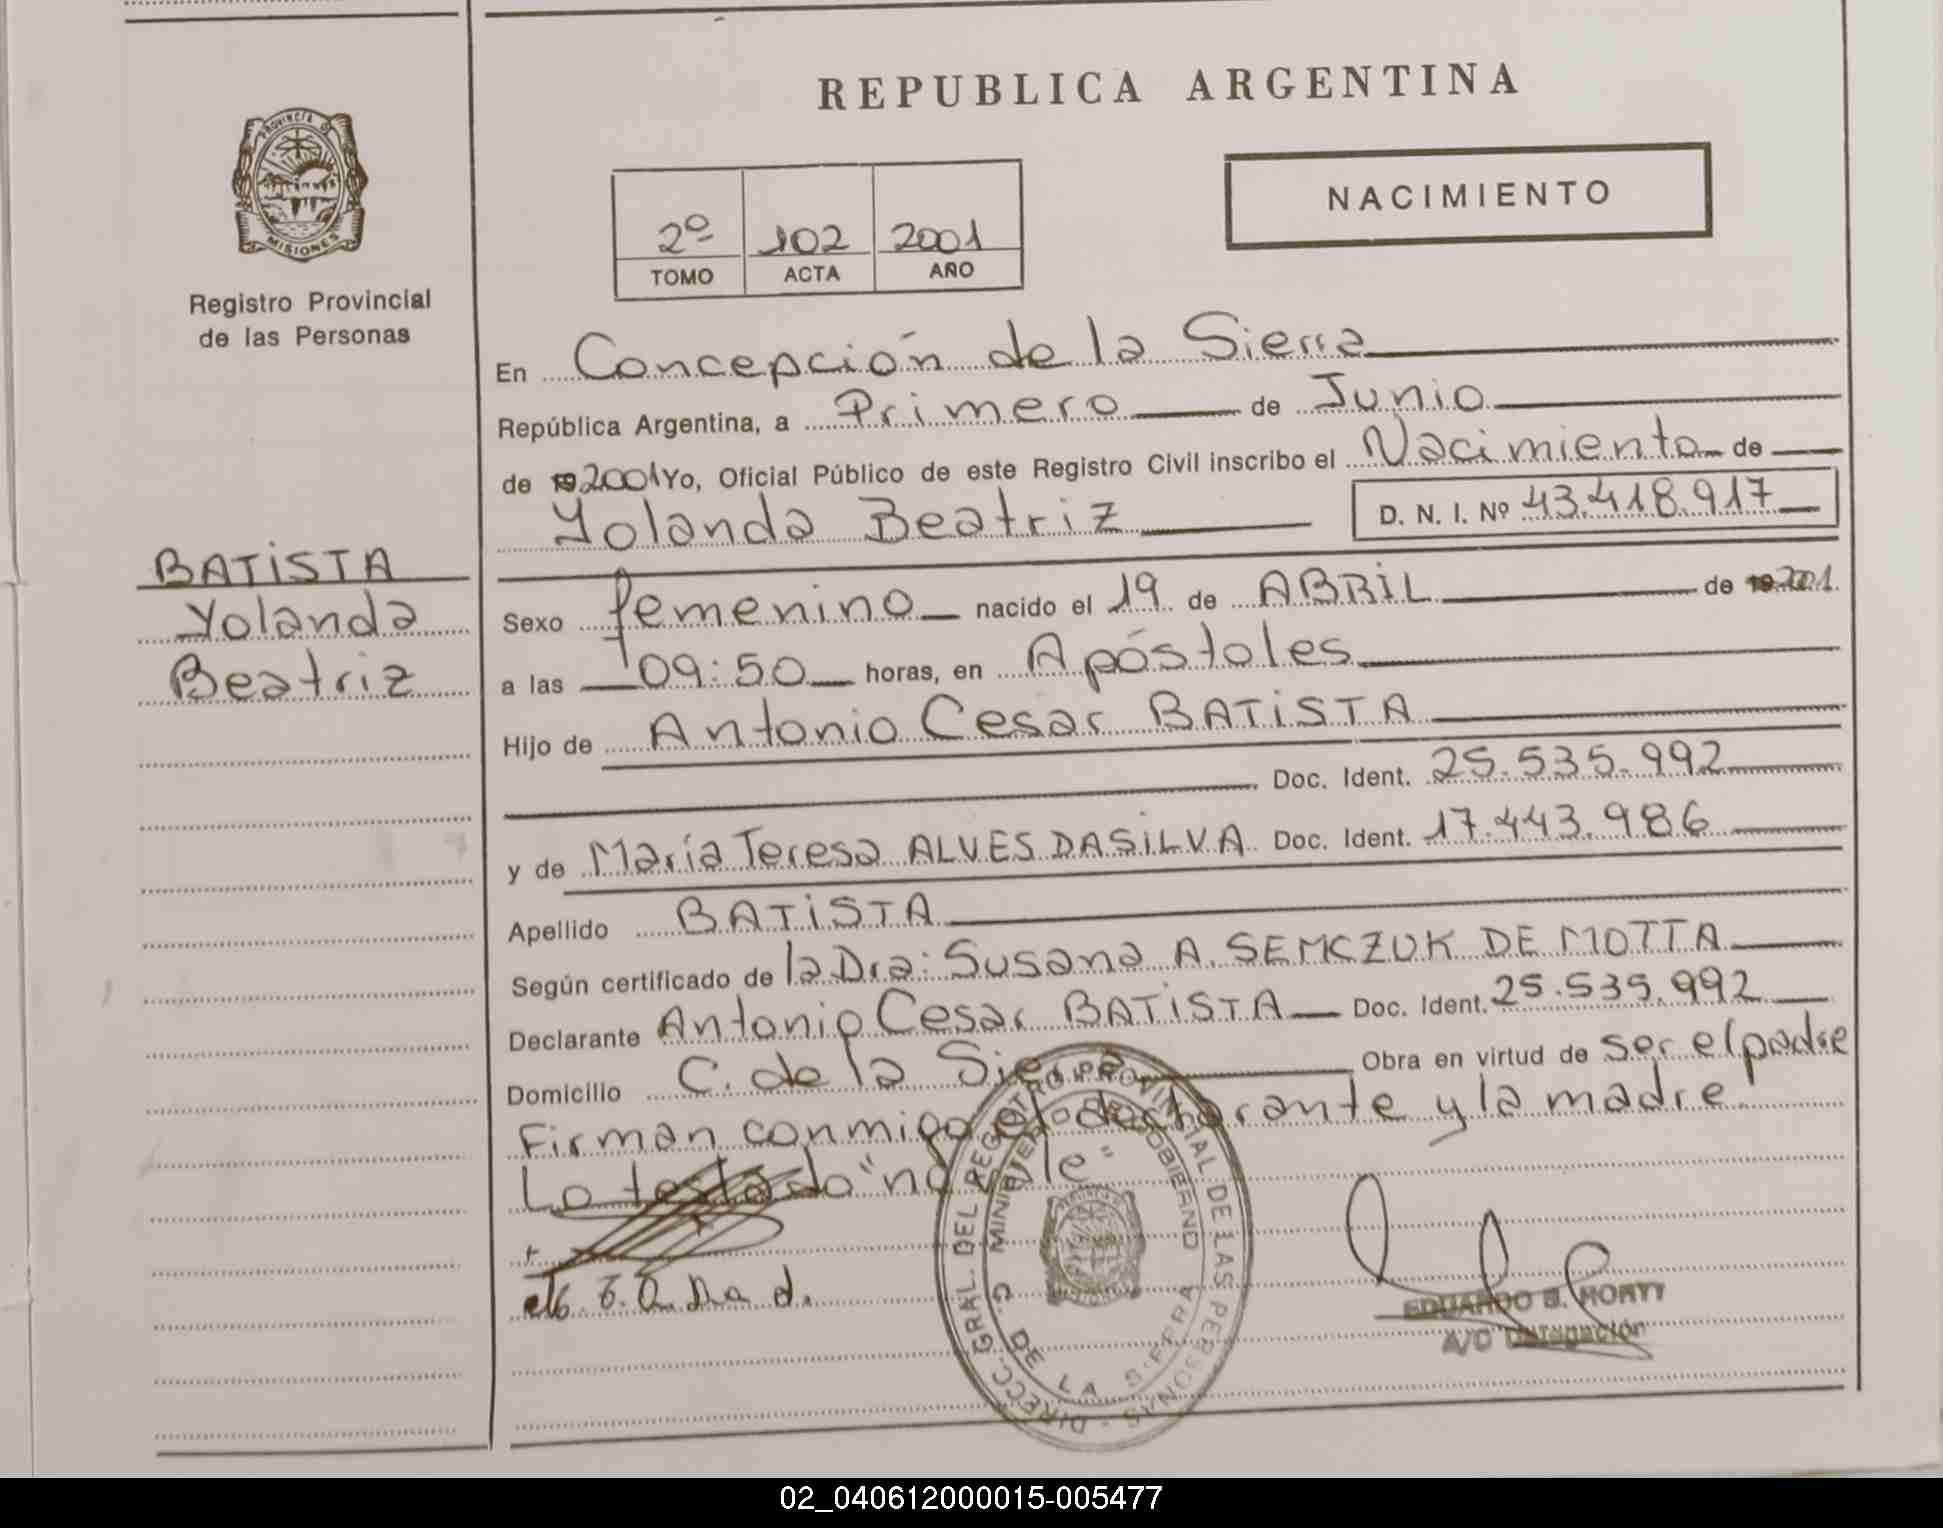 REPUBLICA ARGENTINA
PROVINCIA DE
MISIONES
Registro Provincial
de las Personas
NACIMIENTO
2º 102 2001
TOMO ACTA AÑO
En Concepción de la Sierra
República Argentina, a Primero de Junio
de 192001 Yo, Oficial Público de este Registro Civil inscribo el Nacimiento de
Yolanda Beatriz D. N. I. Nº 43.418.917
BATISTA
Yolanda
Beatriz
Sexo femenino nacido el 19 de ABRIL de 2001.
a las 09:50 horas, en Apóstoles
Hijo de Antonio Cesar BATISTA
Doc. Ident. 25.535.992
y de María Teresa ALVES DASILVA Doc. Ident. 17.443.986
Apellido BATISTA
Según certificado de la Dra: Susana A. SEMCZUK DE MOTTA
Declarante Antonio Cesar BATISTA Doc. Ident. 25.535.992
Domicilio C. de la Sierra Obra en virtud de ser el padre
Firman conmigo el declarante y la madre
Lo testado "no vale"
DIRECC. GRAL. DEL REGISTRO PROVINCIAL DE LAS PERSONAS
MINISTERIO DE GOBIERNO
C. DE LA SIERRA
EDUARDO
A/C Delegación
02_040612000015-005477